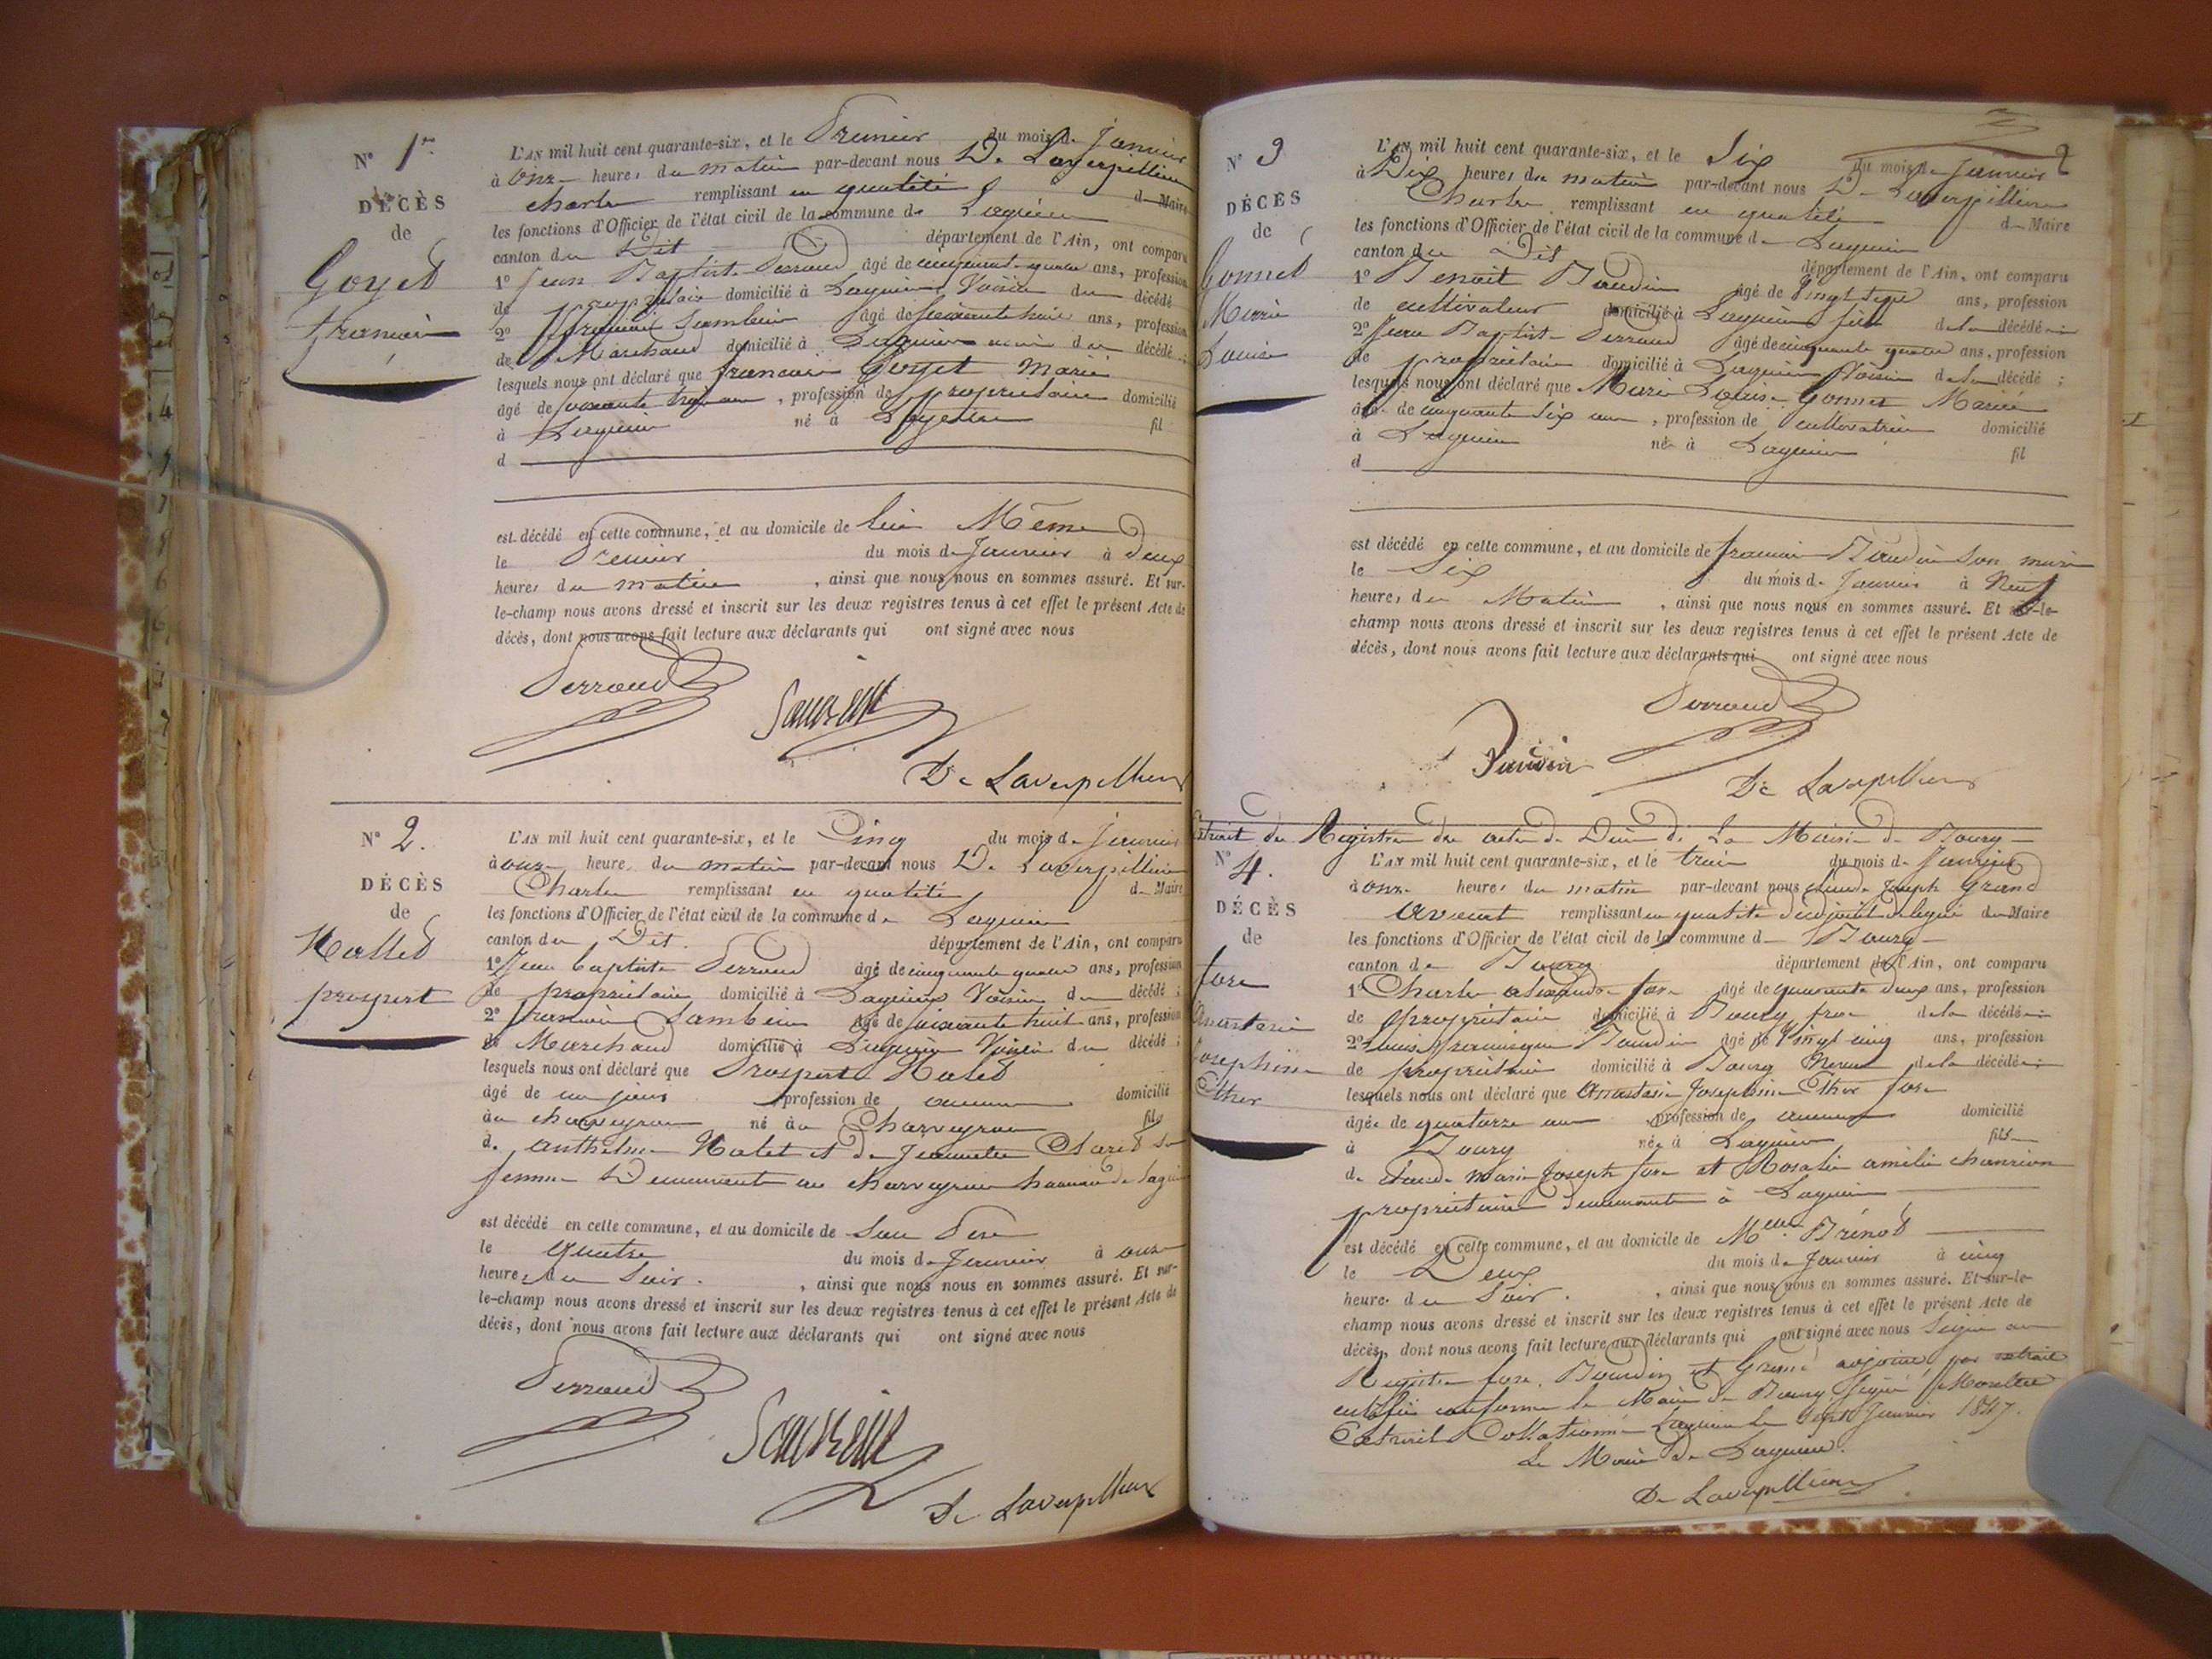 N° 1er
DÉCÈS
de
Goyet
francois
L'AN mil huit cent quarante-six, et le Premier du mois de Janvier
à onze heures du matin par-devant nous De Laverpilliere
charles remplissant en qualité de Maire
les fonctions d'Officier de l'état civil de la commune de Lagnieu
canton du Dit département de l'Ain, ont comparu
1° Jean Baptiste Perraud âgé de cinquante quatre ans, profession
de propriétaire domicilié à Lagnieu Voisin du décédé
2° francois âgé de soixante huit ans, profession
de Marchand domicilié à Lagnieu voisin du décédé ;
lesquels nous ont déclaré que francois Goyet Marié
âgé de soixante ans, profession de propriétaire domicilié
à Lagnieu né à fil
d
est décédé en cette commune, et au domicile de lui Même
le Premier du mois de Janvier à deux
heures du matin, ainsi que nous nous en sommes assuré. Et sur-
le-champ nous avons dressé et inscrit sur les deux registres tenus à cet effet le présent Acte de
décès, dont nous avons fait lecture aux déclarants qui ont signé avec nous
Perraud
De Laverpilliere
N° 2.
DÉCÈS
de
Hallet
prospert
L'AN mil huit cent quarante-six, et le Cinq du mois de Janvier
à onze heure du matin par-devant nous De Laverpilliere
Charles remplissant en qualité de Maire
les fonctions d'Officier de l'état civil de la commune de Lagnieu
canton du Dit. département de l'Ain, ont comparu
1° Jean baptiste Perraud âgé de cinquante quatre ans, profession
de propriétaire domicilié à Lagnieu Voisin du décédé ;
2° francois âgé de soixante huit ans, profession
de Marchand domicilié à Lagnieu Voisin du décédé ;
lesquels nous ont déclaré que Prospert Halet
âgé de un jours profession de aucune domicilié
au charveyron né au Charveyron fils
de anthelme Halet et de Jeannette sa
femme Demeurant au charveyron hameau de Lagnieu
est décédé en cette commune, et au domicile de Son Pere
le quatre du mois de Janvier à onze
heures du Soir., ainsi que nous nous en sommes assuré. Et sur-
le-champ nous avons dressé et inscrit sur les deux registres tenus à cet effet le présent Acte de
décès, dont nous avons fait lecture aux déclarants qui ont signé avec nous
Perraud
De Laverpilliere
2
N° 3
DÉCÈS
de
Gonnet
Marie
Louise
L'AN mil huit cent quarante-six, et le Six du mois de Janvier
à Dix heures du matin par-devant nous De Laverpilliere
Charles remplissant en qualité de Maire
les fonctions d'Officier de l'état civil de la commune de Lagnieu
canton du Dit département de l'Ain, ont comparu
1° Benoit Baudin âgé de Vingt sept ans, profession
de cultivateur domicilié à Lagnieu fils de la décédée
2° Jean Baptiste Perraud âgé de cinquante quatre ans, profession
de propriétaire domicilié à Lagnieu Voisin de la décédé ;
lesquels nous ont déclaré que Marie Louise Gonnet Mariée
âgée de cinquante six ans, profession de cultivatrice domicilié
à Lagnieu née à Lagnieu fil
d
est décédé en cette commune, et au domicile de francois Baudin Son mari
le Six du mois de Janvier à Neuf
heures du Matin, ainsi que nous nous en sommes assuré. Et sur-le-
champ nous avons dressé et inscrit sur les deux registres tenus à cet effet le présent Acte de
décès, dont nous avons fait lecture aux déclarants qui ont signé avec nous
Perraud
Baudin
De Laverpilliere
Extrait du Registre des actes de Décès de La Mairie de Bourg
N° 4.
DÉCÈS
de
fore
Anastasie
Josephine
Esther
L'AN mil huit cent quarante-six, et le trois du mois de Janvier
à onze heures du matin par-devant nous Claude Joseph Grand
avocat remplissant en qualité d'adjoint délégué du Maire
les fonctions d'Officier de l'état civil de la commune de Bourg
canton de Bourg département de l'Ain, ont comparu
1° Charles alexandre fore âgé de quarante deux ans, profession
de propriétaire domicilié à Bourg de la décédée
2° Louis Baudin âgé de Vingt cinq ans, profession
de propriétaire domicilié à Bourg Neveu de la décédée
lesquels nous ont déclaré que Anastasie Josephine Esther fore
âgée de quatorze ans profession de aucune domicilié
à Bourg née à Lagnieu fille
de Claude Marie Joseph fore et Rosalie amélie chanrion
propriétaires demeurants à Lagnieu
est décédé en cette commune, et au domicile de Melle Brénot
le Deux du mois de Janvier à cinq
heure du Soir., ainsi que nous nous en sommes assuré. Et sur-le-
champ nous avons dressé et inscrit sur les deux registres tenus à cet effet le présent Acte de
décès, dont nous avons fait lecture aux déclarants qui ont signé avec nous Signé au
Registre fore. Baudin et Grand adjoint, par extrait
certifié conforme le Maire de Bourg Signé
Extrait Collationné Lagnieu le Sept Janvier 1847.
Le Maire De Lagnieu.
De Laverpilliere